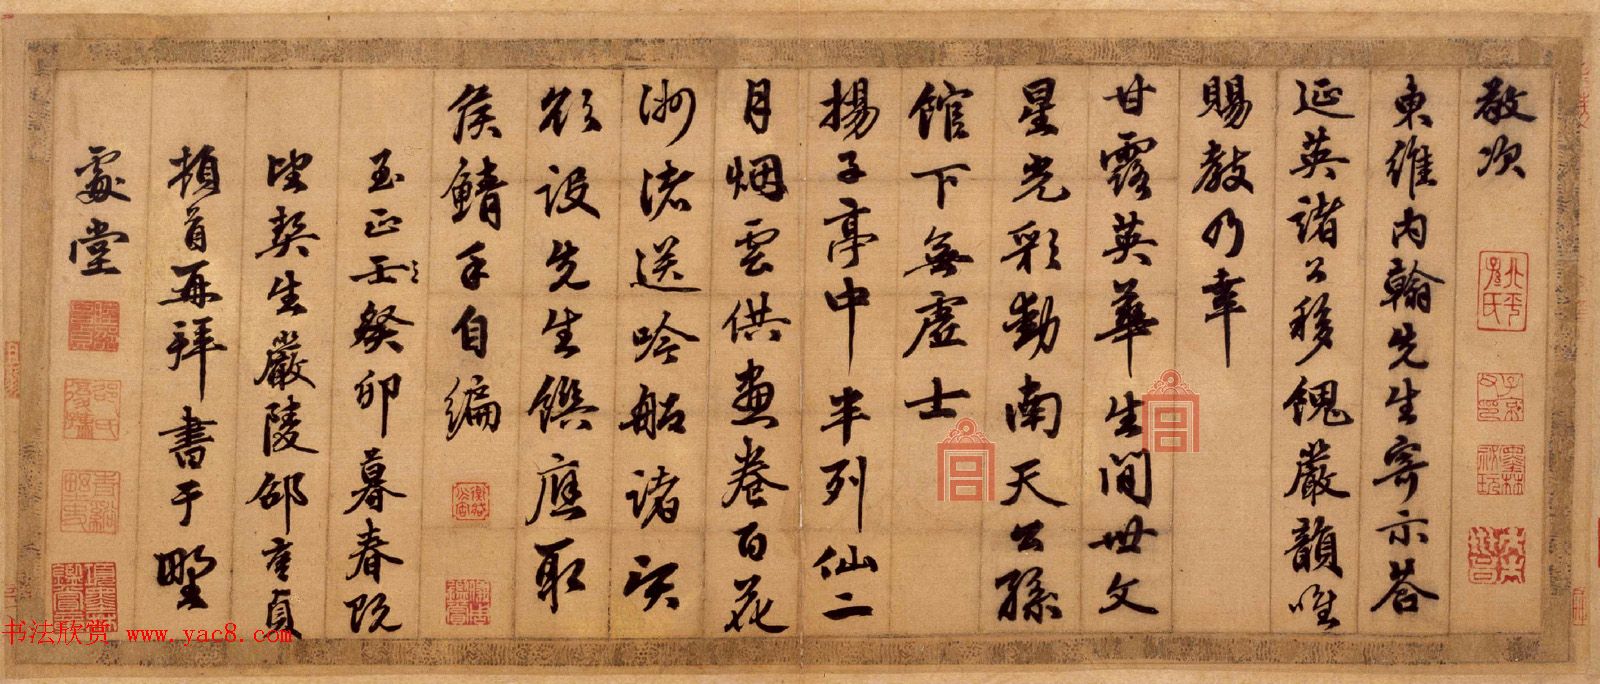 敬次
東維内翰先生寄示荅
延英諸公移傀嚴韻唯
賜教乃幸
甘露英華生間世文
星光彩動南天公孫
館下無虛士
揚子亭中半列仙二
月烟雲供畫卷百花
洲渚送吟船諸賓
欲設先生饌應取
侯鯖手自編
至正壬癸卯暮春既
望契生嚴陵邵亨貞
頓首再拜書于野
處堂
书法欣赏 www.yac8.com